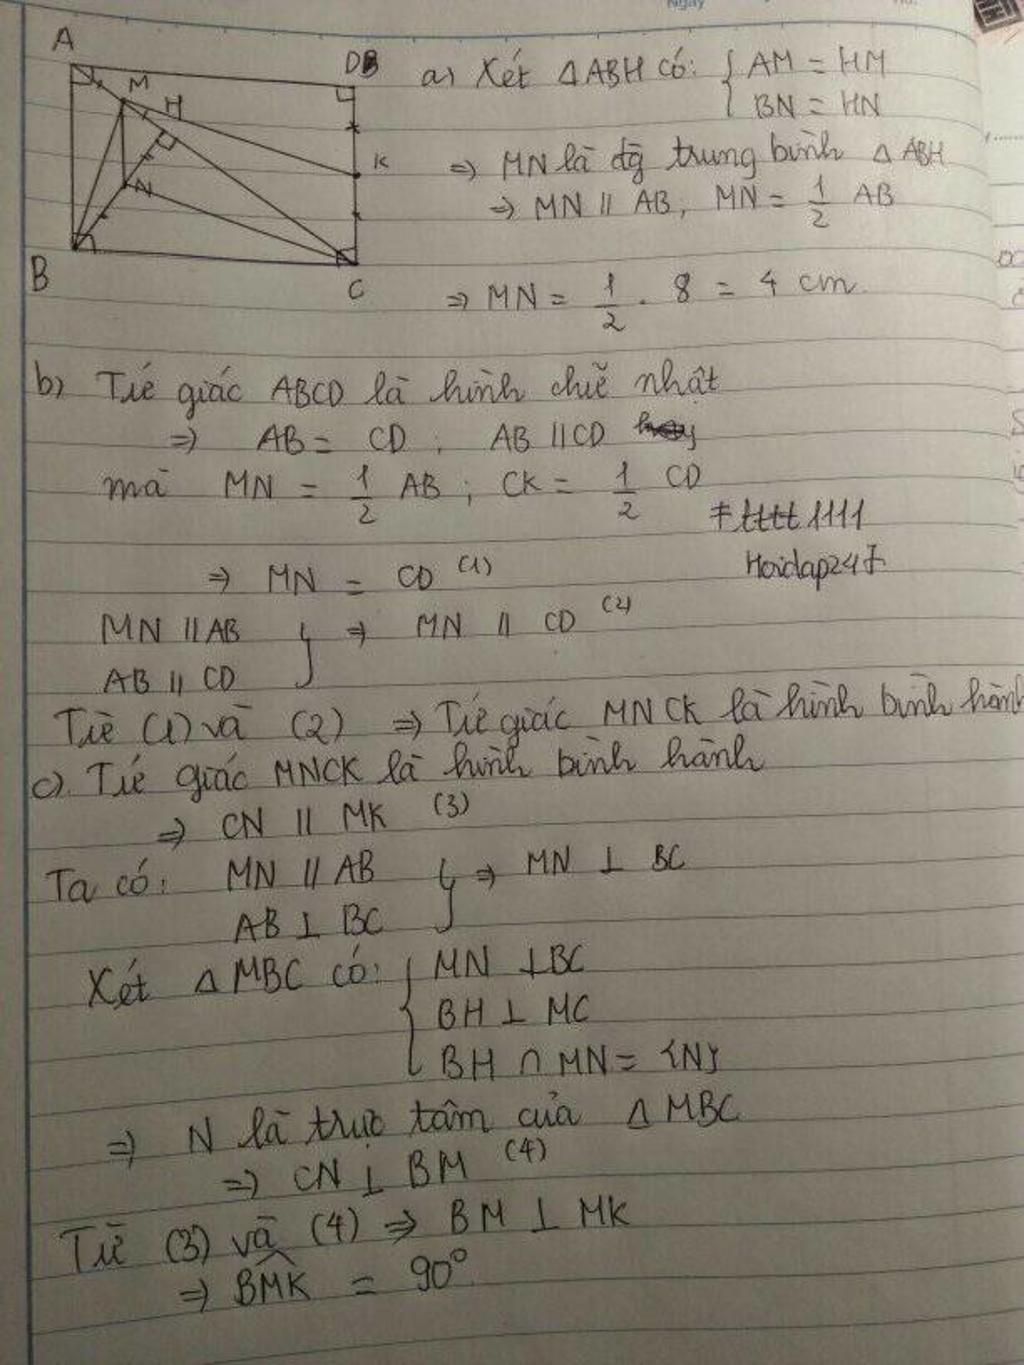 Ngày
A
DB
M
H
K
N
B
C
a) Xét △ABH có: { AM = HM
BN = HN
⇒ MN là đg trung bình △ ABH
⇒ MN // AB, MN = 1/2 AB
⇒ MN = 1/2 . 8 = 4 cm
b) Tứ giác ABCD là hình chữ nhật
⇒ AB = CD ; AB // CD
mà MN = 1/2 AB ; CK = 1/2 CD
Hoidap247
⇒ MN = CD (1)
MN // AB } ⇒ MN // CD (2)
AB // CD
Từ (1) và (2) ⇒ Tứ giác MNCK là hình bình hành
c) Tứ giác MNCK là hình bình hành
⇒ CN // MK (3)
Ta có: MN // AB } ⇒ MN ⊥ BC
AB ⊥ BC
Xét △ MBC có: { MN ⊥ BC
BH ⊥ MC
BH ∩ MN = {N}
⇒ N là trực tâm của △ MBC
⇒ CN ⊥ BM (4)
Từ (3) và (4) ⇒ BM ⊥ MK
⇒ BMK̂ = 90°